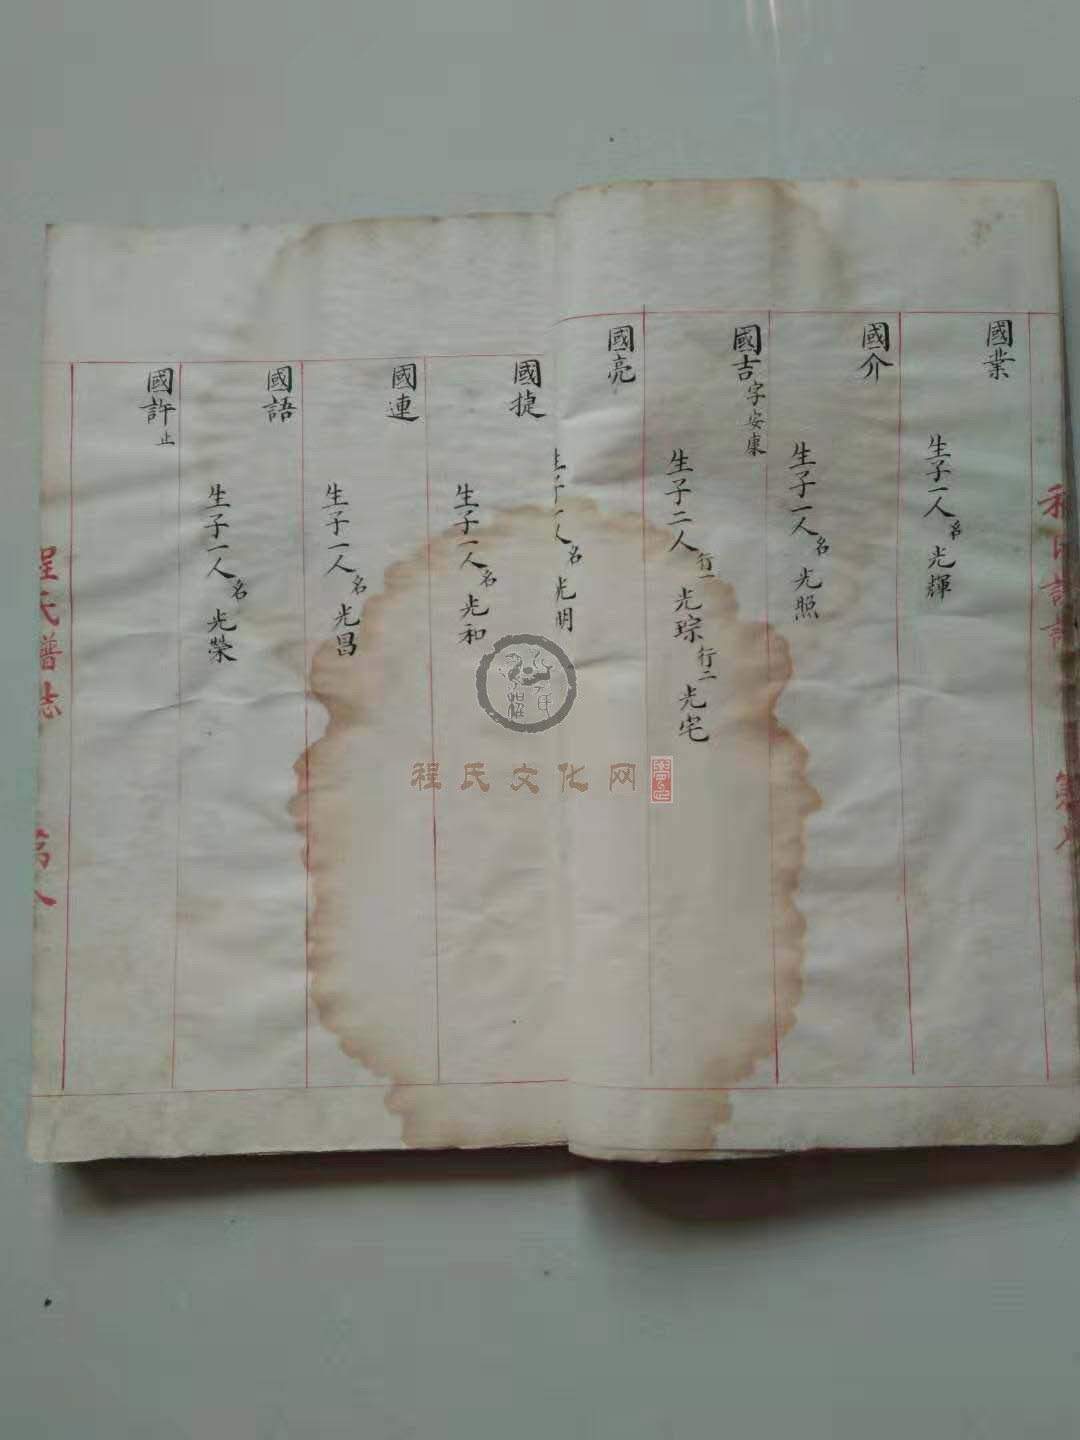 國業
生子一人名光輝
國介
生子一人名光照
國吉字安康
生子二人行一光琮行二光宅
國亮
生子一人名光明
國捷
生子一人名光和
國連
生子一人名光昌
國語
生子一人名光榮
國許止
程氏譜誌
程氏文化网